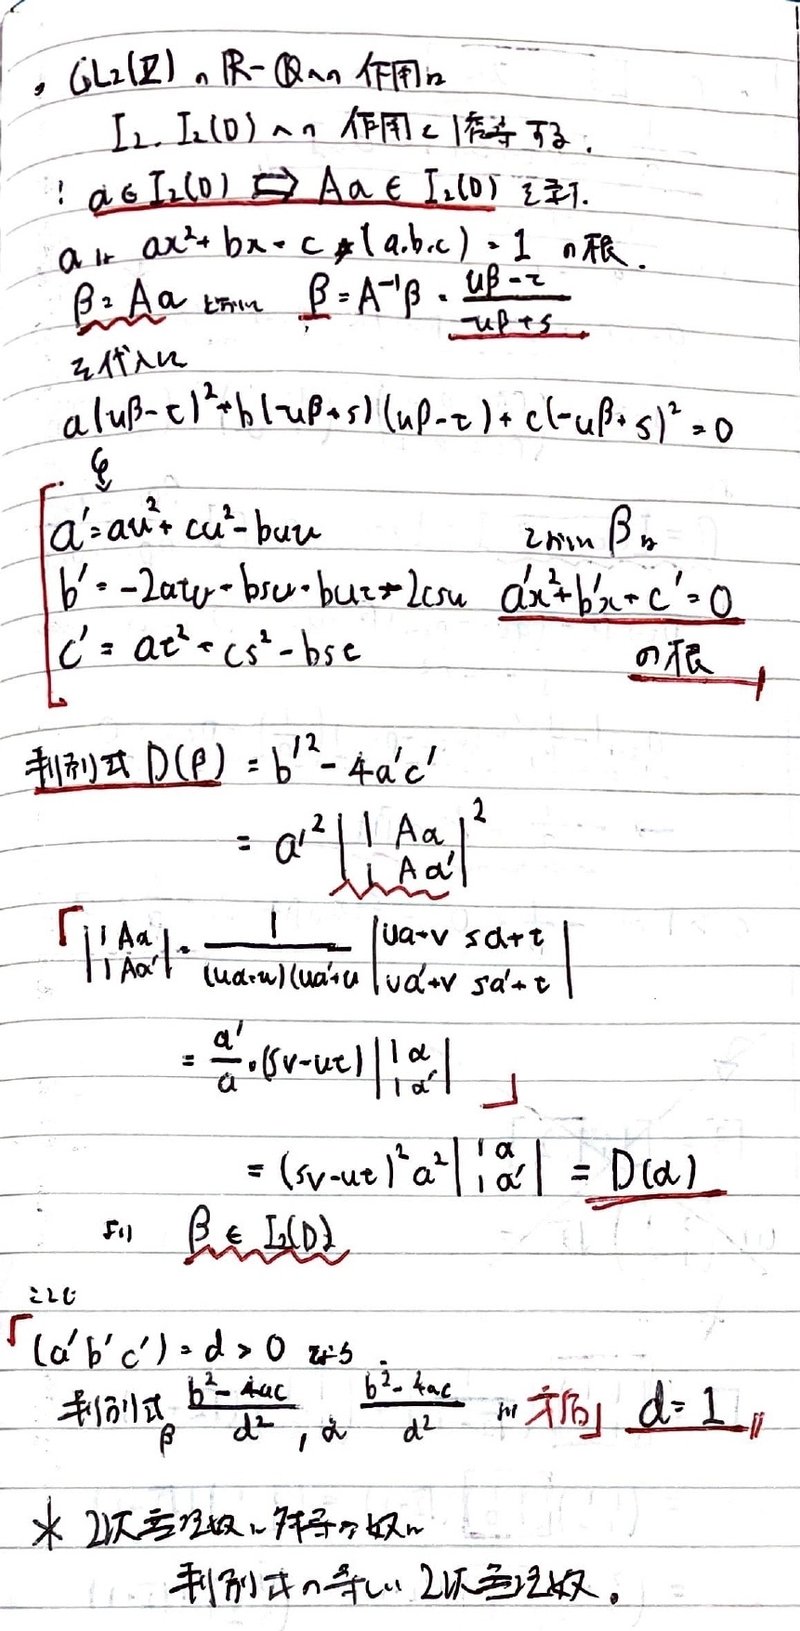 ・GL₂(ℤ)の ℝ-ℚへの 作用は
I₂, I₂(D) への 作用と する.
! α∈I₂(D) ⇔ Aα ∈ I₂(D) を示す.
α は ax²+bx+c (a.b.c)=1 の根.
β=Aα とおいて β=A⁻¹β = (uβ-t)/(-uβ+s)
を代入し
a(uβ-t)²+b(-uβ+s)(uβ-t)+c(-uβ+s)²=0
a'=au²+cu²-buu
b'=-2atv-bsu-but+2csu
c'=at²+cs²-bst
β は
a'x²+b'x+c'=0
の根
判別式 D(β) = b'²-4a'c'
= a'² |1 Aα|²
|1 Aα'|
「|1 Aα| = 1/((uα+u)(uα'+u) |uα+v sα+t|
|1 Aα'| |uα'+v sα'+t|
= a'/a ・(sv-ut) |1 α|
|1 α'| 」
= (sv-ut)² a² |1 α| = D(α)
|1 α'|
より β ∈ I₂(D)
「(a'b'c')=d>0 なら.
判別式 β (b²-4ac)/d² , α (b²-4ac)/d² 矛盾」 d=1 〃
* 2次無理数に対等な数は
判別式の等しい 2次無理数.